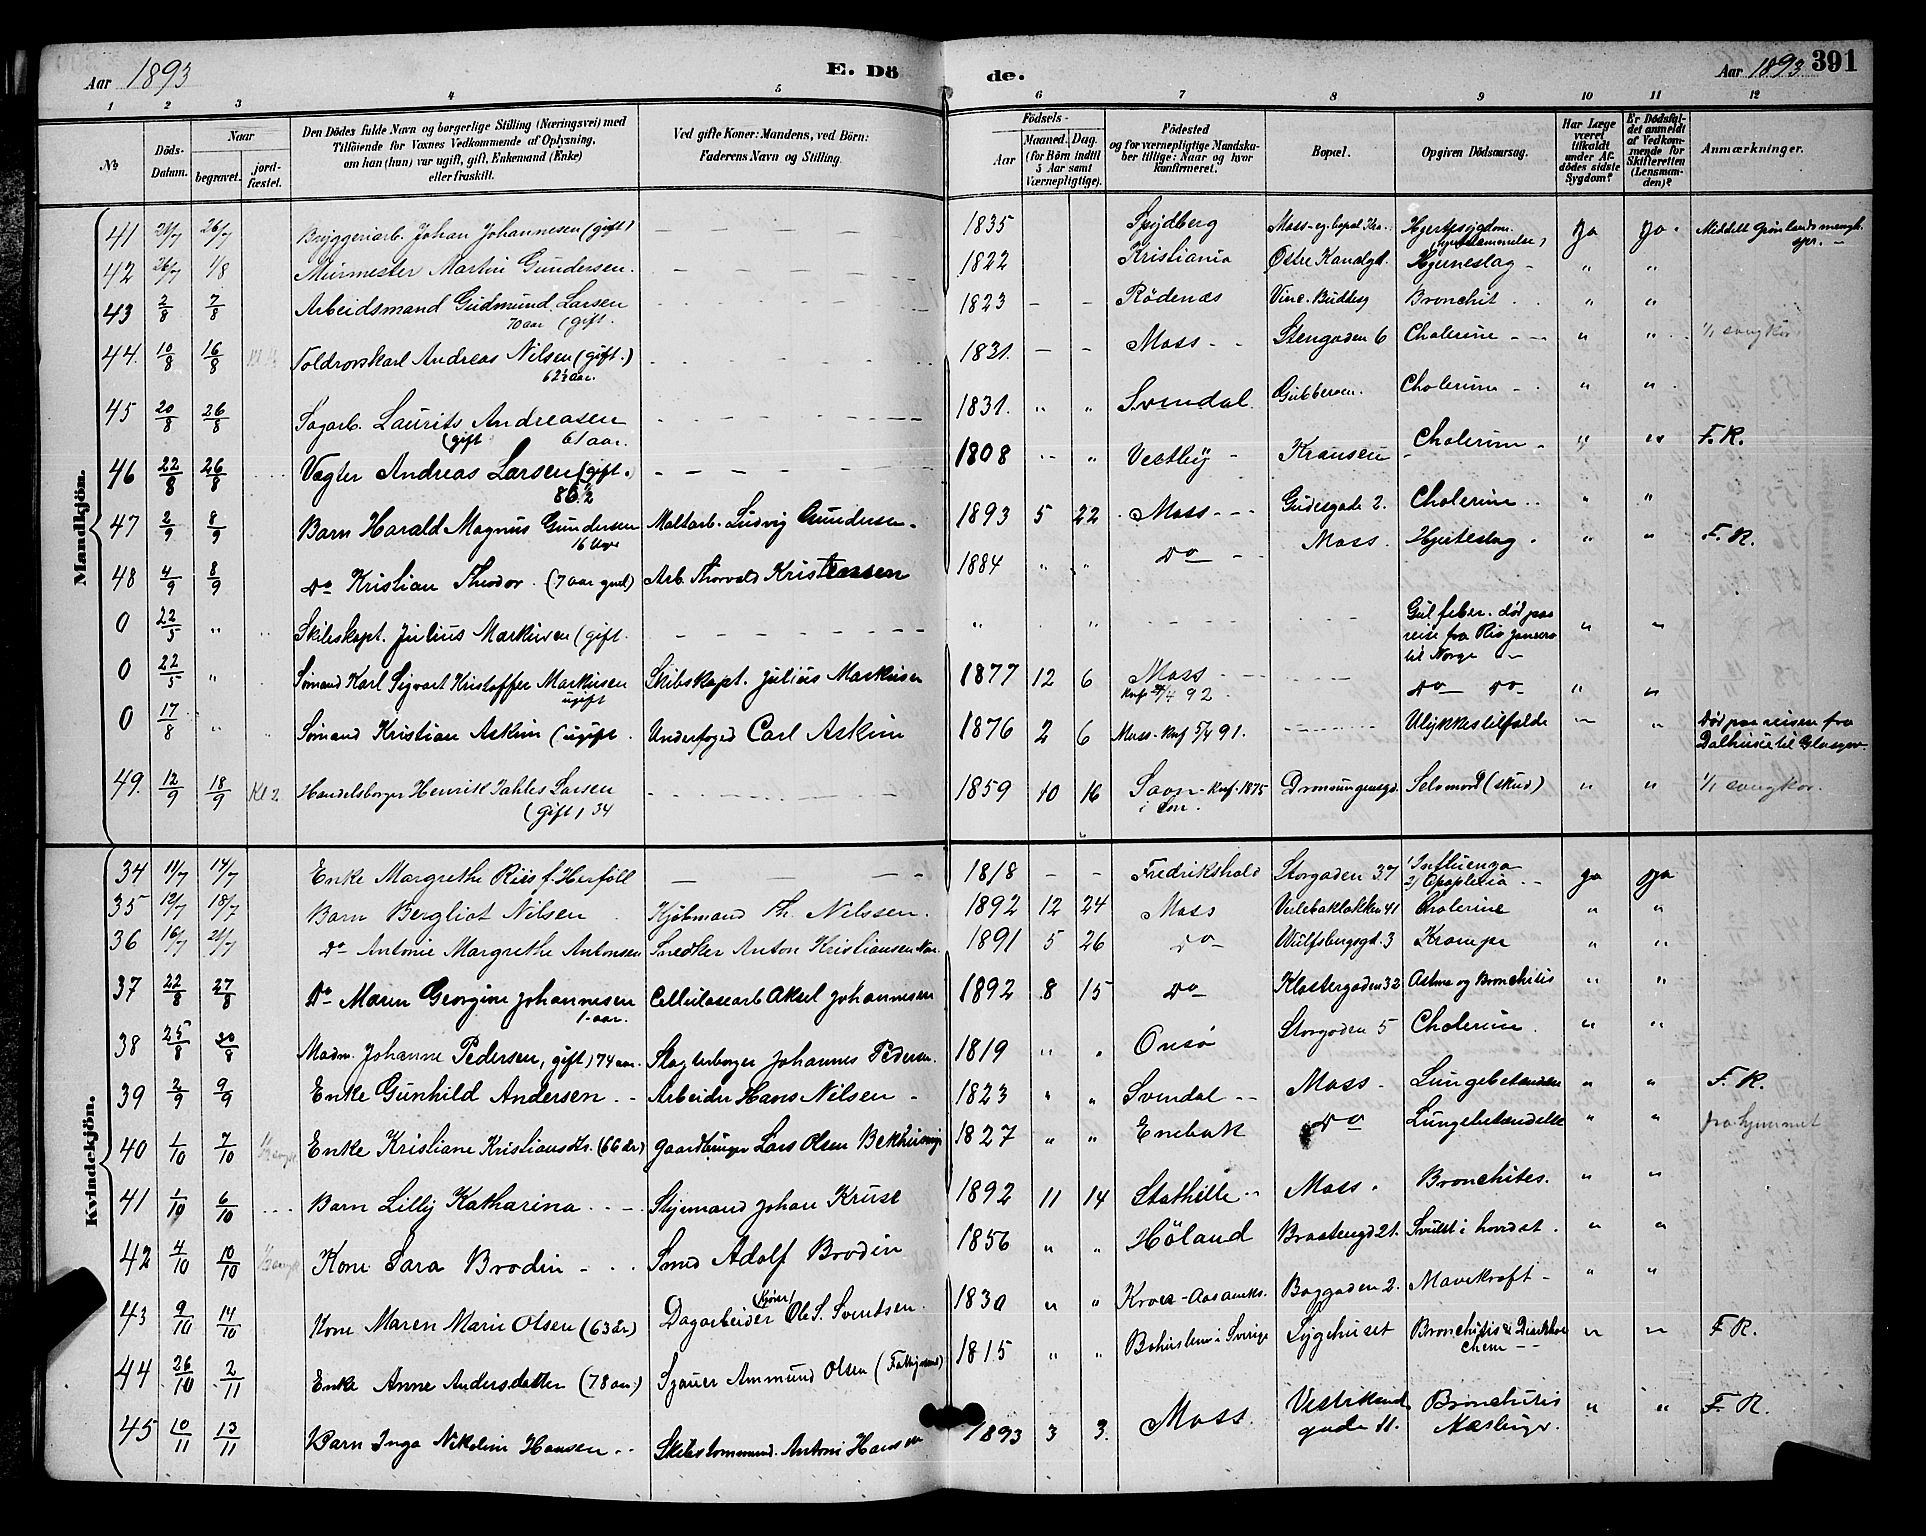 Aar 1893
E. Dö
de.
Aar 1893
391
1 2 3 4 5 6 7 8 9 10 11 12
No
Döds-
Datum.
Naar
begravet.
jord-
fæstet.
Den Dödes fulde Navn og borgerlige Stilling (Næringsvei) med
Tilföiende for Voxnes Vedkommende af Oplysning,
om han (hun) var ugift, gift, Enkemand (Enke)
eller fraskilt.
Ved gifte Koner: Mandens, ved Börn:
Faderens Navn og Stilling.
Födsels-
Aar
Maaned. Dag.
(for Börn indtil
5 Aar samt
Værnepligtige).
Födested
og for værnepligtige Mandska-
ber tillige: Naar og hvor
konfirmeret.
Bopæl.
Opgiven Dödsaarsag.
Har Læge
været
tilkaldt
under Af-
dödes sidste
Sygdom?
Er Dödsfal-
det anmeldt
af Vedkom-
mende for
Skifteretten
(Lensman-
den)?
Anmærkninger.
Mandkjön.
41 26/7 Bryggeriarb. Johan Johannesen (gift) 1835 Spydberg Hjertesygdom Ja Ja
42 26/7 1/8 Murmester Martin Gundersen. 1822 Kristiania Østre Kanalgd. Hjerneslag " "
43 2/8 7/8 Arbeidsmand Gudmund Larsen 1823 Rödenæs Bronchit " "
70 aar (gift.
44. 10/8 16/8 Toldrorskarl Andreas Nilsen (gift.) 1831. Moss Stengaden 6 Cholerine " "
62½ aar.
45 20/8 26/8 Sagarb. Laurits Andreasen 1831. " " Svendal Gubberoen. Cholerine " "
(gift 61 aar.
46 22/8 26/8 Vægter Andreas Larsen (gift.) 1808 " Vestby Kransen Cholerine " " F.R.
47 2/9 8/9 Barn Harald Magnus Gundersen Maltarb. Ludvig Gundersen 1893 5 22 Moss Gudesgade 2. Cholerine " "
16 Uger
48 4/9 8/9 Do Kristian Theodor. (7 aar gml) Arb. Thorvald Kristiansen 1884 " " Do Moss. Hjerteslag " " F.R.
0 22/5 " Skibskapt. Julius Markusen (gift. " " Gul feber. död paa
reise fra Rio Janeiro
til Norge " "
0 22/5 " Sömand Karl Sigvart Kristoffer Markusen Skibskapt. Julius Markusen 1877 12 6 Moss Do Do " "
ugift
0 17/8 " Sömand Kristian Askim (ugift. Underfoged Carl Askim 1876 2 6 Moss. Knf 5/4 91. Ulykkestilfælde "
Död paa reisen fra
Dalhusie til Glasgow.
49. 12/9 18/9 Kl 2 Handelsborger Henrik Larsen 1859 10 16 Knf. 1875 Dronningensgd. Selvmord (skud) " "
(gift) 34
Kvindekjön.
34 11/7 14/7 Enke Margrethe Riis f. Herföll 1818 Fredrikshald Storgaden 37 1) Influenza Ja Ja
2) Apoplexia
35 12/7 18/7 Barn Bergliot Nilsen Kjöbmand Th. Nilssen. 1892 12 24 Moss Verlebakløkken 41 Cholerine " "
36 16/7 21/7 Do Antonie Margrethe Antonsen Snedker Anton Kristiansen 1891 5 26 Do Wulfsbergsgd. 3 Krampe " "
37 22/8 27/8 Do Maren Georgine Johannesen Cellulosearb Aksel Johannesen 1892 8 15 Do Klostergaden 32 Astma og Bronchitis " "
1 aar.
38 25/8 30/8 Madm. Johanne Pedersen, gift) 74 aar. Slagterborger Johannes Pedersen. 1819 " " Onsö Storgaden 5 Cholerine. " "
39 2/9 9/9 Enke Gunhild Andersen. Arbeider Hans Nilsen 1823 " " Svendal Moss. Lungebetændelse " " F.R.
40 1/10 7/10 Enke Kristiane (66 år) Gaardbruger Lars Olsen 1827 " " Enebak Do Lungebetændelse " " fra hjemmet
41 1/10 6/10 Barn Lilly Katharina Styrmand Johan Kruse 1892 11 14 Stathelle Moss. Bronchites. " "
42 4/10 10/10 Kone Sara Brodin Smed Adolf Brodin 1856 " " Höland Braatengd 21. Svulst i hovedet. " "
43 9/10 14/10 Kone Maren Marie Olsen (63 år) Dagarbeider Ole S. Svendsen. 1830 " " Kroer - Baggaden 2. Mavekræft " "
44 26/10 2/11 Enke Anne Andersdatter (78 aar) Sjauer Ammund Olsen 1815 " " Bohuslen i Sverige Sygehuset Bronchitis & " " F.R.
45 10/11 13/11 Barn Inga Nikoline Hansen Antoni Hansen 1893 3 3. Moss. Bronchitis " " F.R.
gade 11.